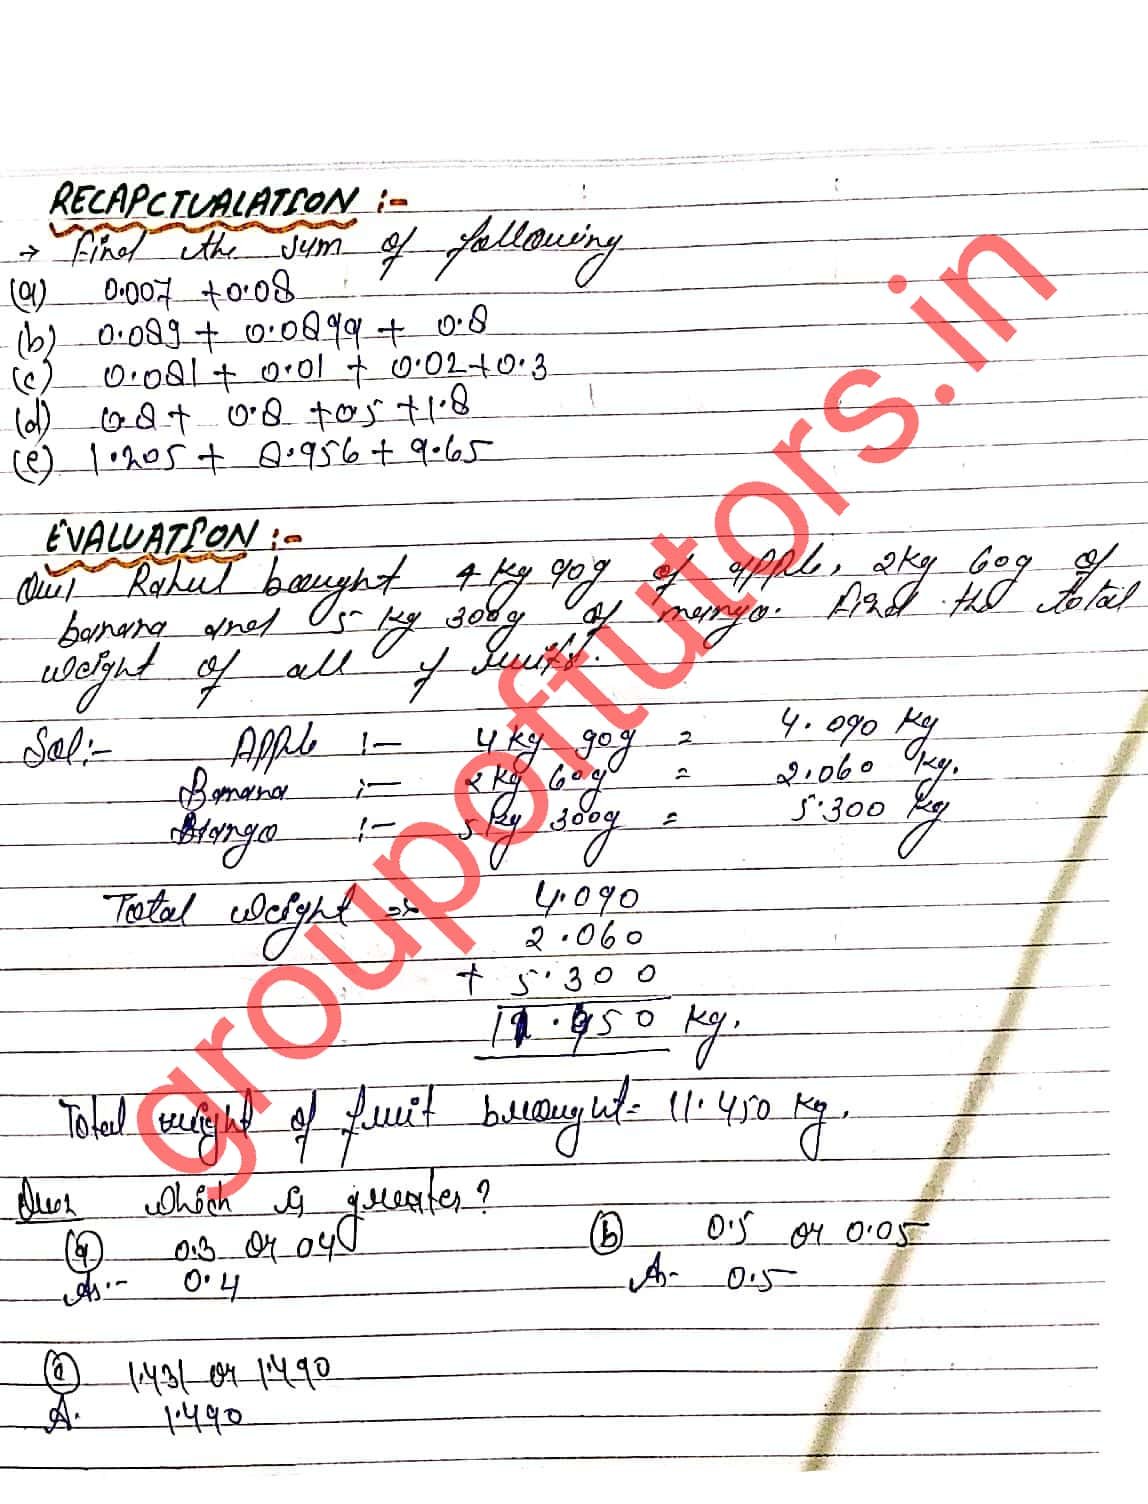 RECAPCTUALATION :-
→ Find the sum of following
(a) 0.007 + 0.08
(b) 0.089 + 0.0899 + 0.8
(c) 0.081 + 0.01 + 0.02 + 0.3
(d) 0.8 + 0.8 + 05 + 1.8
(e) 1.205 + 8.956 + 9.65
EVALUATION :-
Que1 Rahul bought 4 kg 90g of apple, 2kg 60g of
banana and 5 kg 300g of mango. Find the total
weight of all fruits.
Sol:- Apple :- 4 kg 90g = 4.090 kg
Banana :- 2 kg 60g = 2.060 kg.
Mango :- 5 kg 300g = 5.300 kg
Total weight => 4.090
2.060
+ 5.300
11.450 kg.
Total weight of fruit brought = 11.450 kg.
Que2 which is greater?
(a) 0.3 or 04 (b) 0.5 or 0.05
As:- 0.4 A- 0.5
(c) 1.431 or 1.490
A. 1.490
groupoftutors.in